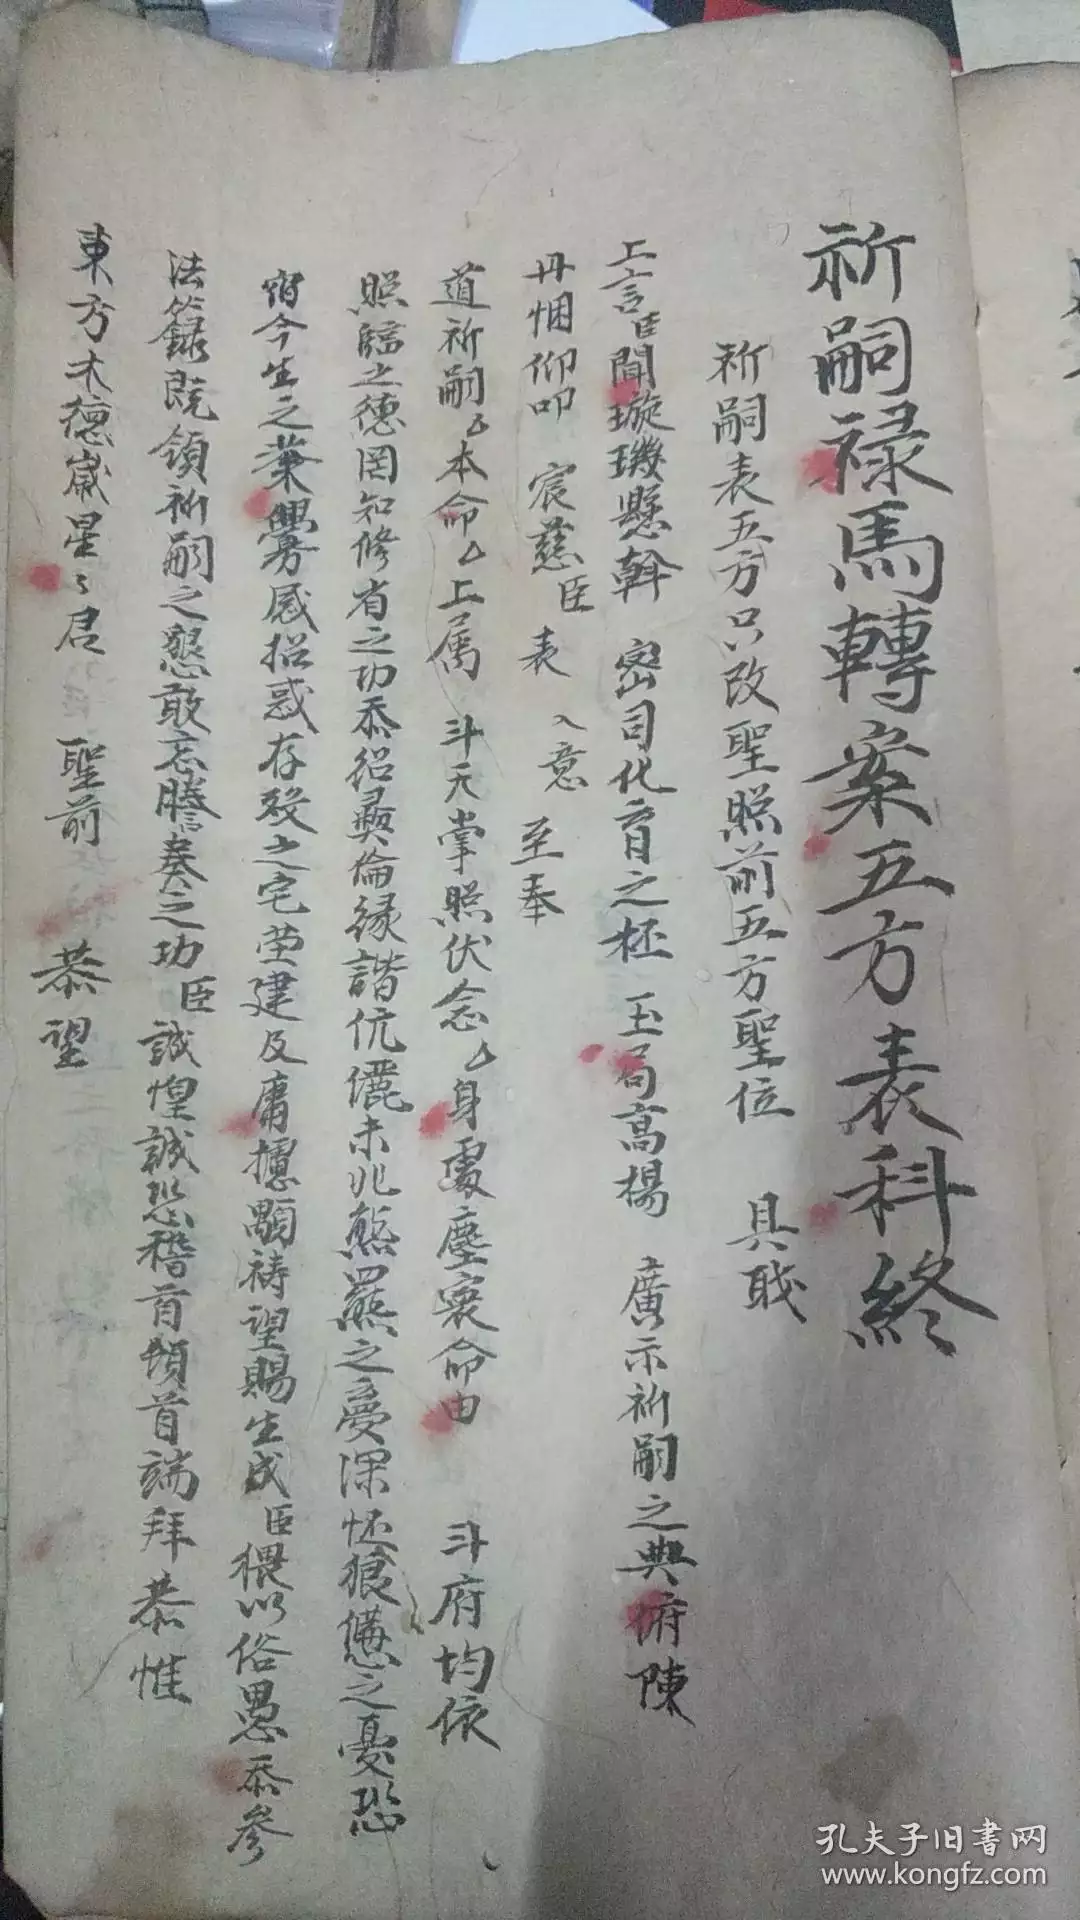 祈嗣禄馬轉案五方表科終
祈嗣表五方只改聖照前五方聖位 具戝
上言臣聞璇璣懸斡 宻司化育之柸 玉局高揚 廣示祈嗣之典俯陳
丹悃仰叩 宸慈臣 表 入意 至奉
道祈嗣厶本命厶上属 斗天掌照伏念厶身處塵寰命由 斗府均依
照臨之德罔知修省之功忝紹彞倫緣諧伉儷未兆熊羆之憂深怀狼之憂恐
宿今生之業舋感招惑存殁之宅茔建及庸攄顒祷望賜生成臣猥以俗愚忝參
法籙既領祈嗣之懇敢忘謄奏之功 臣誠惶誠恐稽首頓首端拜 恭惟
東方木德歲星々君 聖前 恭望
孔夫子旧書网
www.kongfz.com